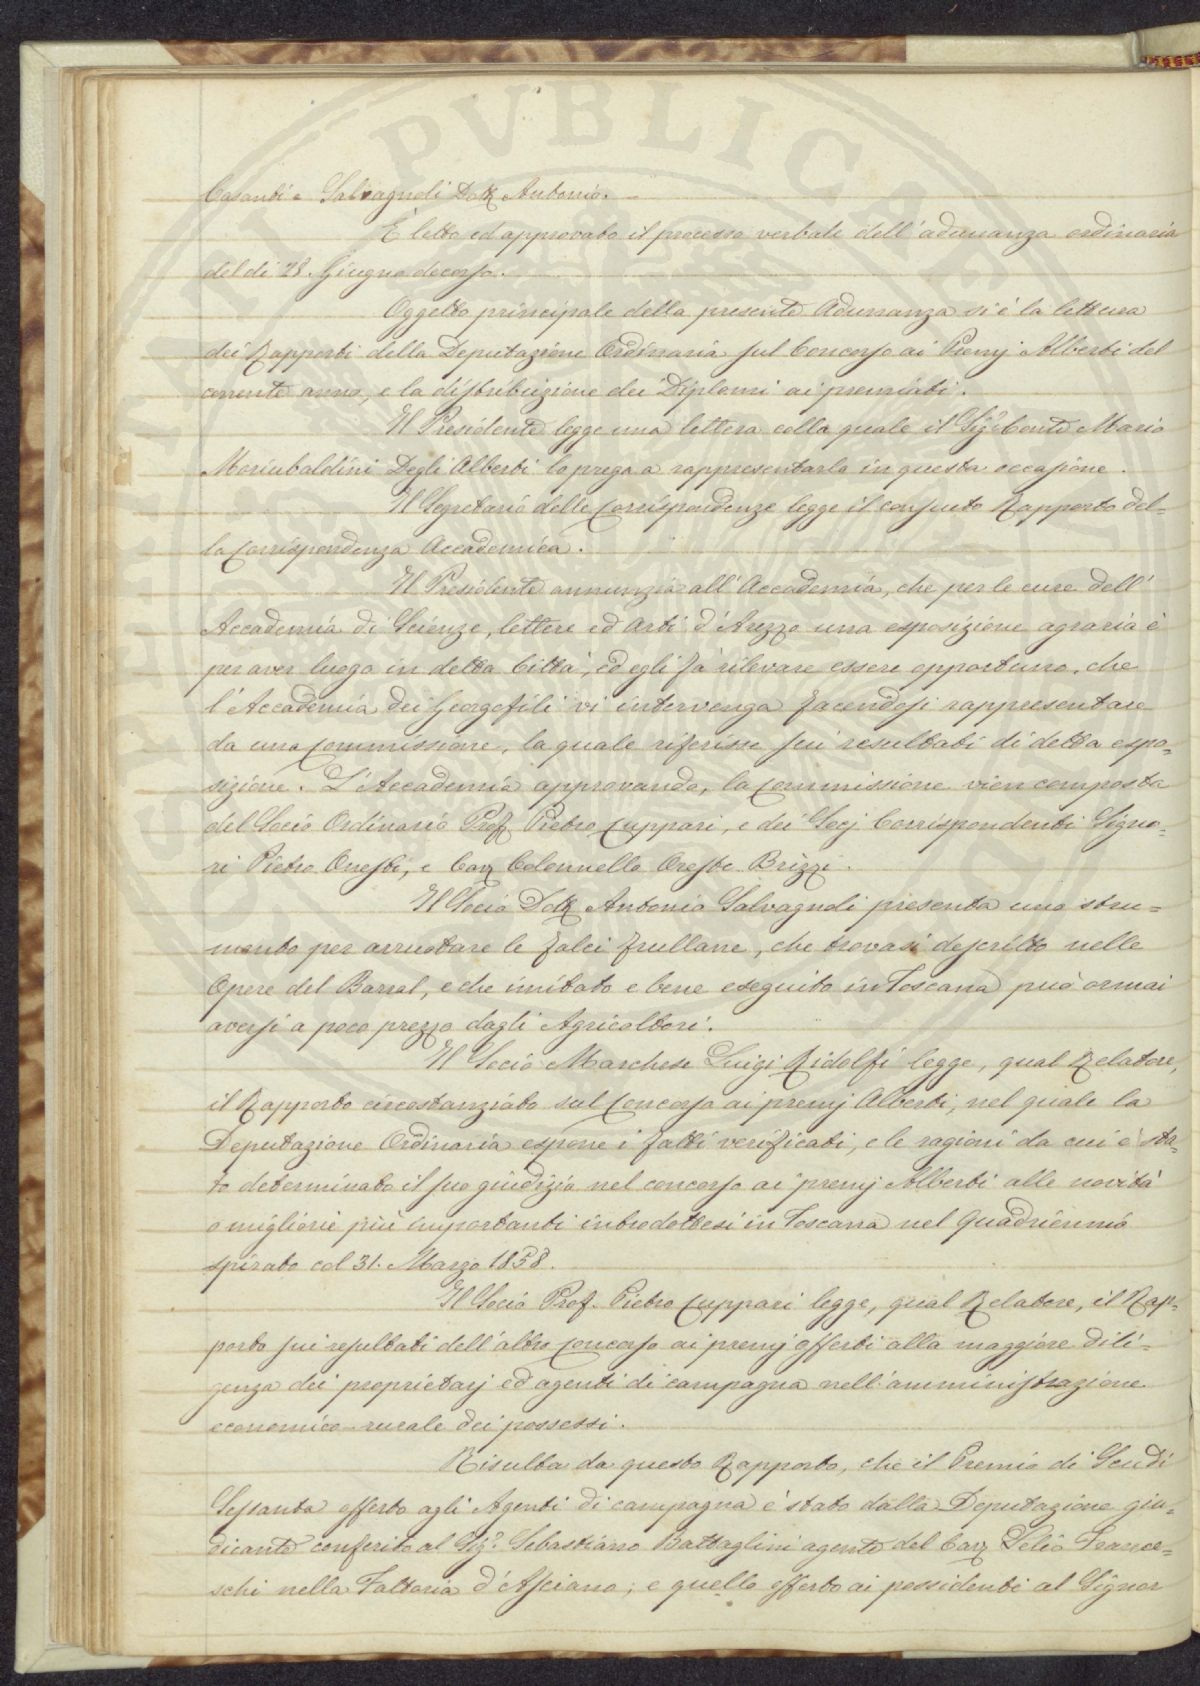 Casanti e Salvagnoli Dott Antonio.
È letto ed approvato il processo verbale dell'adunanza ordinaria
del dì 28. Giugno decorso.
Oggetto principale della presente Adunanza si è la lettura
dei Rapporti della Deputazione Ordinaria sul Concorso ai Premj Alberti del
corrente anno, e la distribuzione dei Diplomi ai premiati.
Il Presidente legge una lettera colla quale il Sigr Conte Mario
Moriubaldini Degli Alberti lo prega a rappresentarlo in questa occasione.
Il Segretario delle Corrispondenze legge il consueto Rapporto del=
la Corrispondenza Accademica.
Il Presidente annunzia all'Accademia, che per le cure dell'
Accademia di Scienze, lettere ed Arti d'Arezzo una esposizione agraria è
per aver luogo in detta Città, ed egli fa rilevare essere opportuno, che
l'Accademia dei Georgofili vi intervenga facendosi rappresentare
da una Commissione, la quale riferisse sui resultati di detta espo=
sizione. L'Accademia approvando, la Commissione vien composta
del Socio Ordinario Prof. Pietro Cuppari, e dei Socj Corrispondenti Signo=
ri Pietro Onesti, e Cav Colonnello Oreste Brizzi.
Il Socio Dott Antonio Salvagnoli presenta uno stru=
mento per arruotare le falci frullane, che trovasi descritto nelle
Opere del Barral, e che imitato e bene eseguito in Toscana può ormai
aversi a poco prezzo dagli Agricoltori.
Il Socio Marchese Luigi Ridolfi legge, qual Relatore,
il Rapporto circostanziato sul Concorso ai premj Alberti, nel quale la
Deputazione Ordinaria espone i fatti verificati, e le ragioni da cui è sta=
to determinato il suo giudizio nel concorso ai premj Alberti alle novità
o migliorie più importanti introdottesi in Toscana nel quadriennio
spirato col 31. Marzo 1858.
Il Socio Prof. Pietro Cuppari legge, qual Relatore, il Rap=
porto sui resultati dell'altro Concorso ai premj offerti alla maggiore dili=
genza dei proprietarj ed agenti di campagna nell'amministrazione
economico-rurale dei possessi.
Risulta da questo Rapporto, che il Premio di Scudi
Sessanta offerto agli Agenti di campagna è stato dalla Deputazione giu=
dicante conferito al Sigr. Sebastiano Battaglini agente del Cav Lelio France=
schi nella Fattoria d'Asciano; e quello offerto ai possidenti al Signor